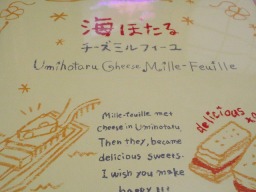 海ほたる
チーズミルフィーユ
Umihotaru Cheese Mille-Feuille
Mille-feuille met
cheese in Uminotaru.
Then they, became
delicious sweets.
I wish you make
happy !!!
delicious